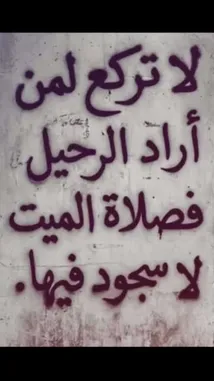 لا تركع لمن
أراد الرحيل
فصلاة الميت
لا سجود فيها.